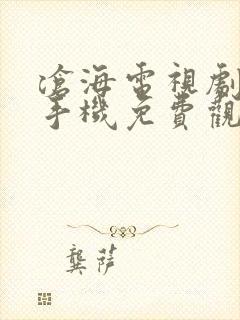 滄海電視劇
手機免費觀
龔萍